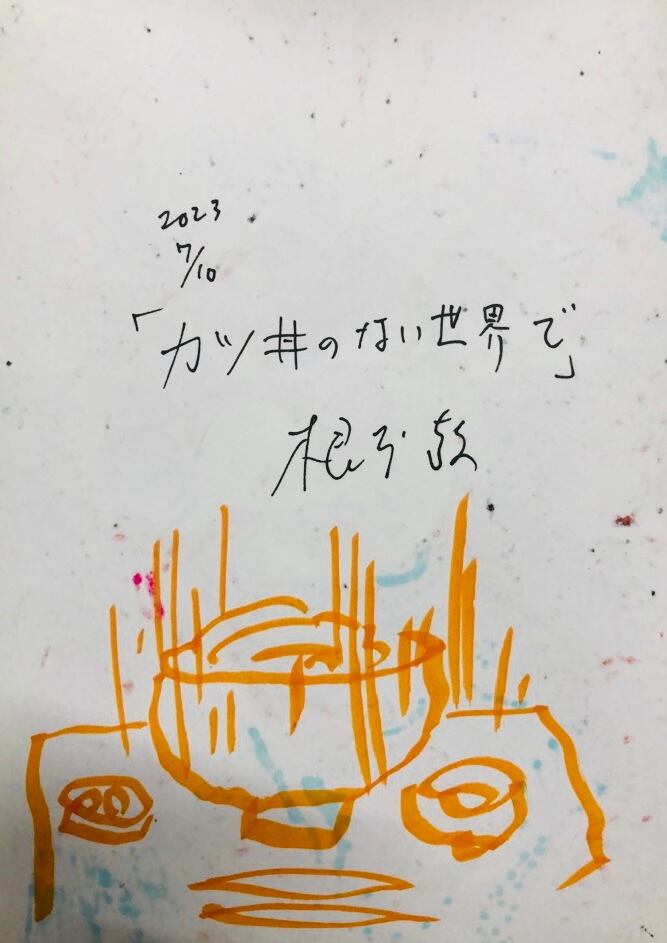 2023
7/10
「カツ丼のない世界で」
根子敬